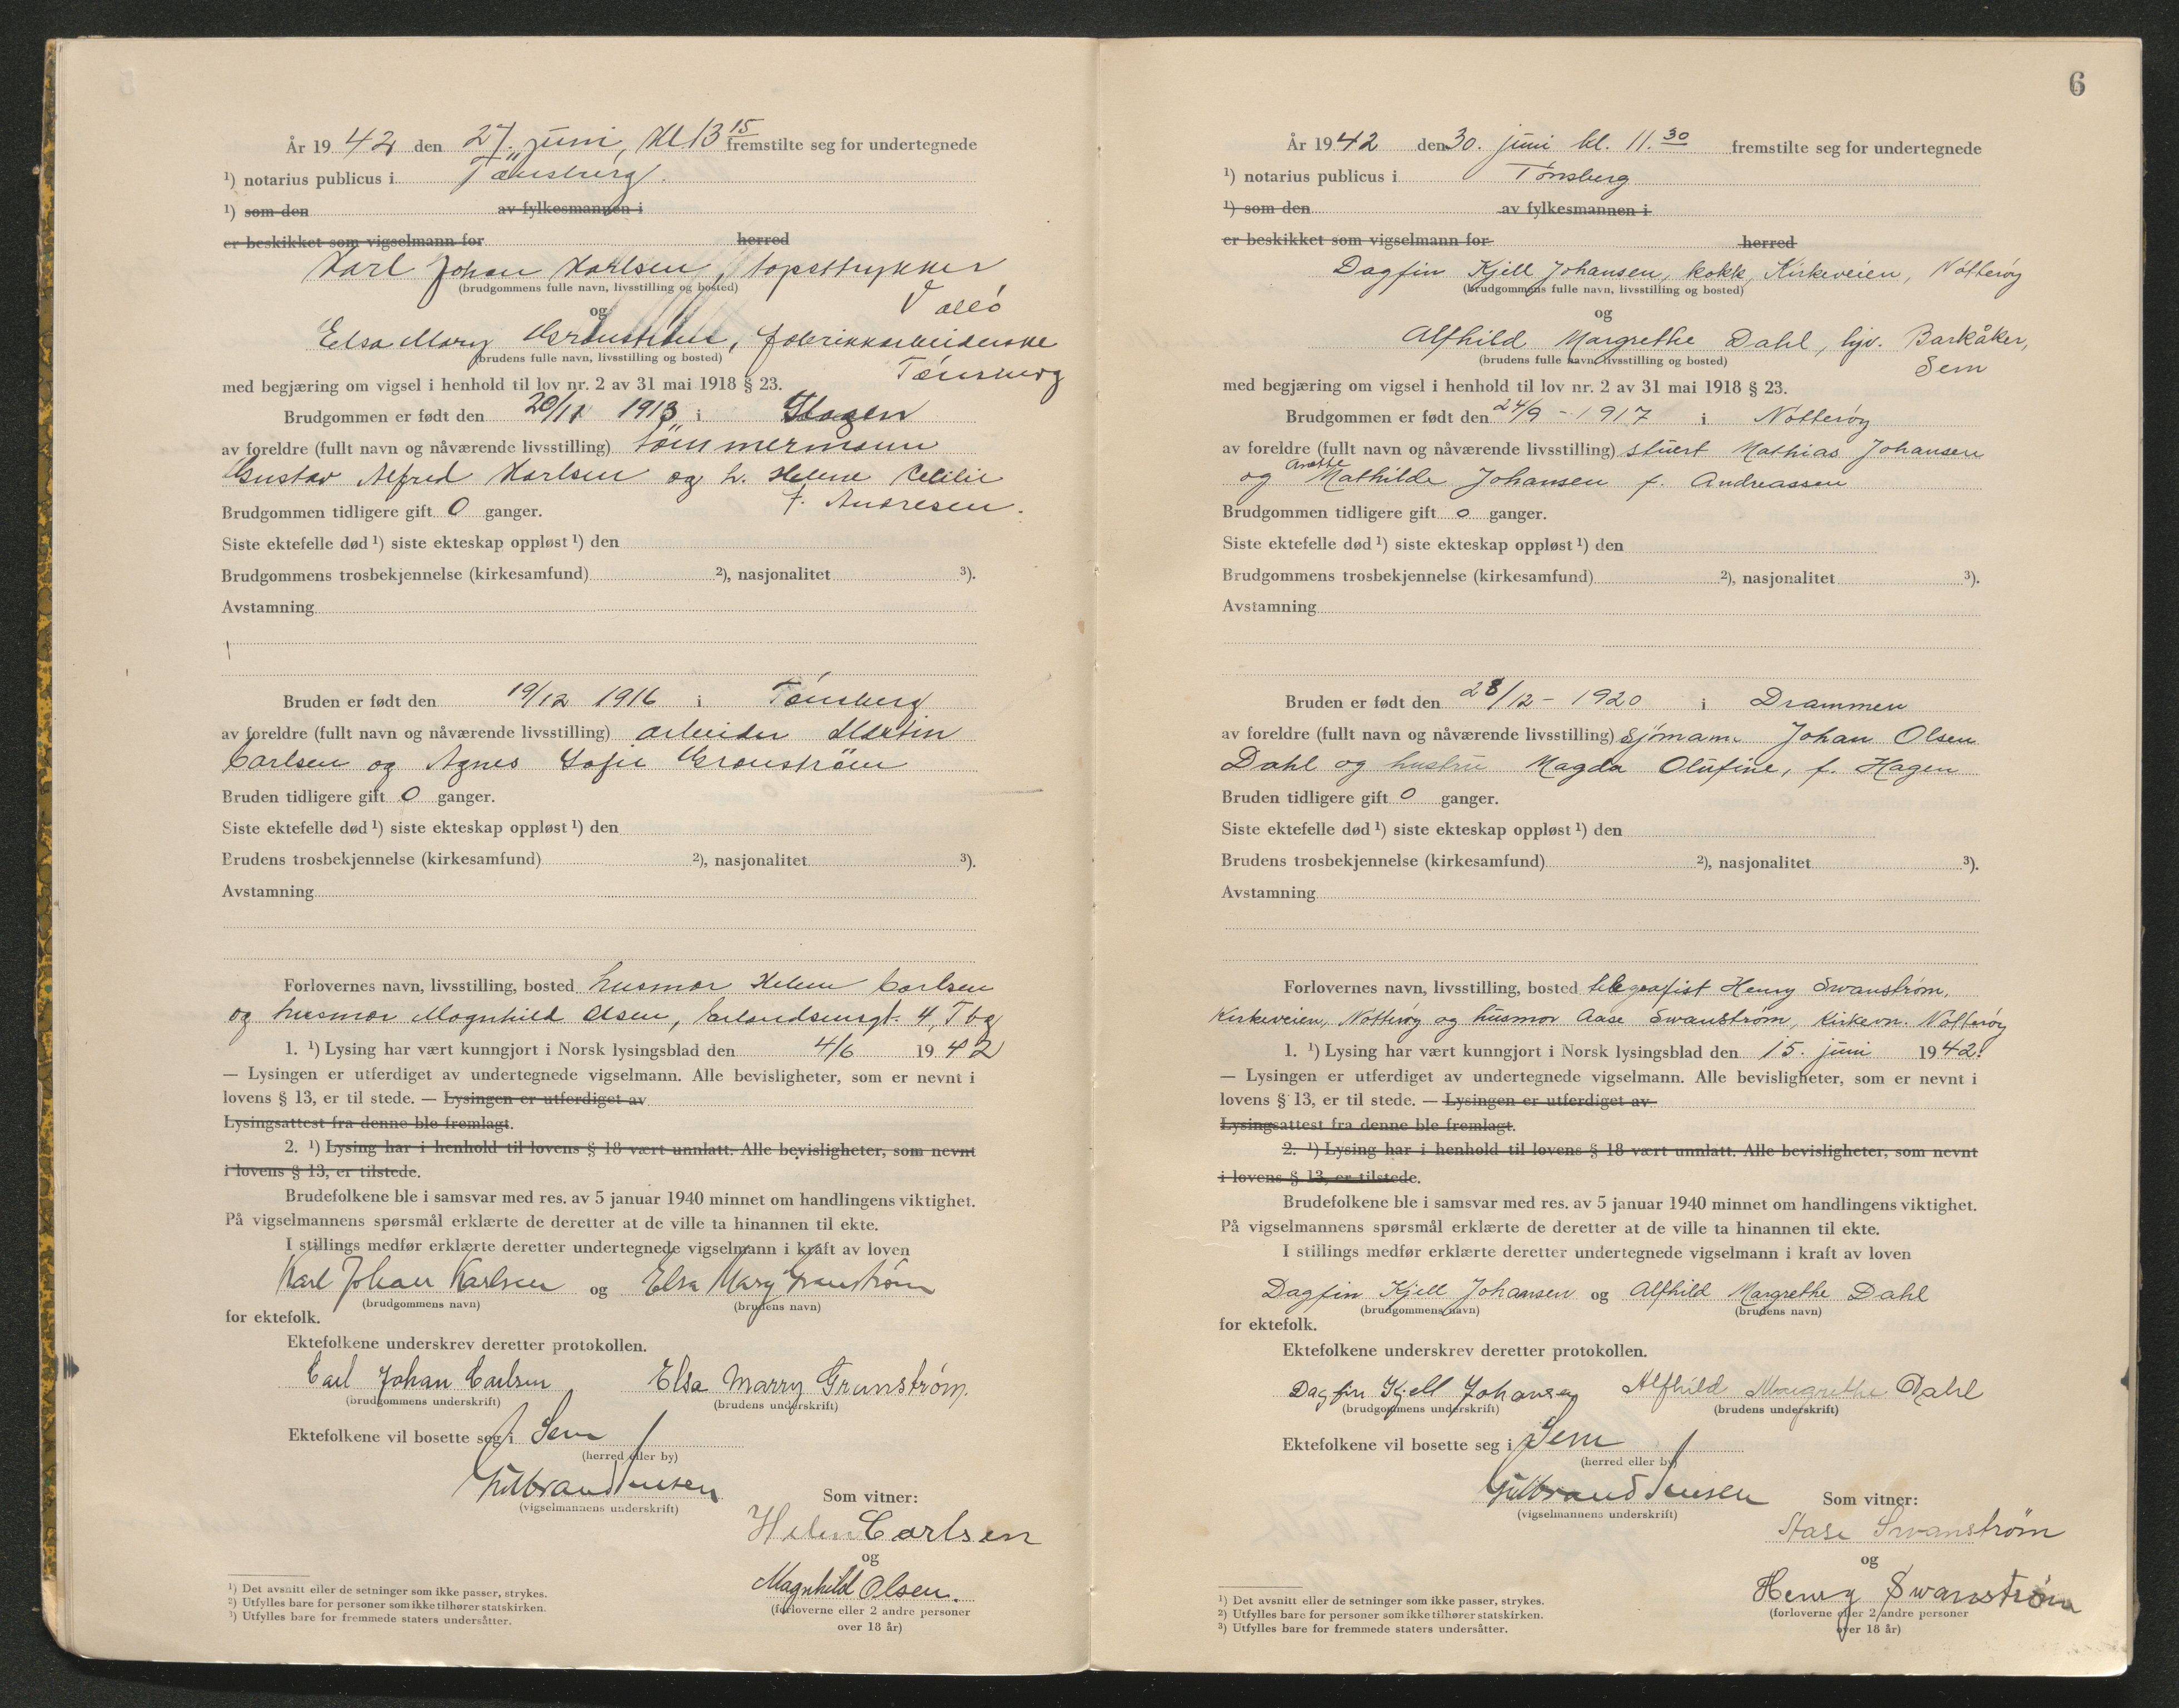 År 19 42 den 27. juni, kl 13 15 fremstilte seg for undertegnede
¹) notarius publicus i Tønsberg.
¹) som den av fylkesmannen i
er beskikket som vigselmann for herred
Karl Johan Karlsen, tapettrykker
(brudgommens fulle navn, livsstilling og bosted)
Valló
og
Elsa Mary Granström, fabrikkarbeiderske
(brudens fulle navn, livsstilling og bosted)
Tönsberg
med begjæring om vigsel i henhold til lov nr. 2 av 31 mai 1918 § 23.
Brudgommen er født den 20/11 1913 i Slagen
av foreldre (fullt navn og nåværende livsstilling) tömmermann
Gustav Alfred Karlsen og h. Helene Cecilie
f. Andresen.
Brudgommen tidligere gift 0 ganger.
Siste ektefelle død ¹) siste ekteskap oppløst ¹) den
Brudgommens trosbekjennelse (kirkesamfund) ²), nasjonalitet ³).
Avstamning
Bruden er født den 19/12 1916 i Tönsberg
av foreldre (fullt navn og nåværende livsstilling) arbeider Martin
Carlsen og Agnes Sofie Granström
Bruden tidligere gift 0 ganger.
Siste ektefelle død ¹) siste ekteskap oppløst ¹) den
Brudens trosbekjennelse (kirkesamfund) ²), nasjonalitet ³).
Avstamning
Forlovernes navn, livsstilling, bosted husmor Helene Carlsen
og husmor Magnhild Olsen, Erlandsensgt. 4, Tbg
1. ¹) Lysing har vært kunngjort i Norsk lysingsblad den 4/6 19 42
— Lysingen er utferdiget av undertegnede vigselmann. Alle bevisligheter, som er nevnt i
lovens § 13, er til stede. — Lysingen er utferdiget av
Lysingsattest fra denne ble fremlagt.
2. ¹) Lysing har i henhold til lovens § 18 vært unnlatt. Alle bevisligheter, som nevnt
i lovens § 13, er tilstede.
Brudefolkene ble i samsvar med res. av 5 januar 1940 minnet om handlingens viktighet.
På vigselmannens spørsmål erklærte de deretter at de ville ta hinannen til ekte.
I stillings medfør erklærte deretter undertegnede vigselmann i kraft av loven
Karl Johan Karlsen og Elsa Mary Granstrøm
(brudgommens navn) (brudens navn)
for ektefolk.
Ektefolkene underskrev deretter protokollen.
Carl Johan Carlsen Elsa Marry Granstrøm.
(brudgommens underskrift) (brudens underskrift)
Ektefolkene vil bosette seg i Sem
(herred eller by)
Gulbrand Jensen
(vigselmannens underskrift)
Som vitner:
Helen Carlsen
og
Magnhild Olsen.
(forloverne eller 2 andre personer
over 18 år)
¹) Det avsnitt eller de setninger som ikke passer, strykes.
²) Utfylles bare for personer som ikke tilhører statskirken.
³) Utfylles bare for fremmede staters undersåtter.
6
År 19 42 den 30. juni kl. 11.30 fremstilte seg for undertegnede
¹) notarius publicus i Tønsberg
¹) som den av fylkesmannen i
er beskikket som vigselmann for herred
Dagfin Kjell Johansen, kokk, Kirkeveien, Nøtterøy
(brudgommens fulle navn, livsstilling og bosted)
og
Alfhild Margrethe Dahl, hjv. Barkåker,
(brudens fulle navn, livsstilling og bosted)
Sem
med begjæring om vigsel i henhold til lov nr. 2 av 31 mai 1918 § 23.
Brudgommen er født den 24/9 - 1917 i Nøtterøy
av foreldre (fullt navn og nåværende livsstilling) stuert Mathias Johansen
og Anette Mathilde Johansen f. Andreassen
Brudgommen tidligere gift 0 ganger.
Siste ektefelle død ¹) siste ekteskap oppløst ¹) den
Brudgommens trosbekjennelse (kirkesamfund) ²), nasjonalitet ³).
Avstamning
Bruden er født den 28/12 - 1920 i Drammen
av foreldre (fullt navn og nåværende livsstilling) Sjømann Johan Olsen
Dahl og hustru Magda Olufine, f. Hagen
Bruden tidligere gift 0 ganger.
Siste ektefelle død ¹) siste ekteskap oppløst ¹) den
Brudens trosbekjennelse (kirkesamfund) ²), nasjonalitet ³).
Avstamning
Forlovernes navn, livsstilling, bosted telegrafist Henry Swanstrøm,
Kirkeveien, Nøtterøy og husmor Aase Swanstrøm, Kirkevn. Nøtterøy
1. ¹) Lysing har vært kunngjort i Norsk lysingsblad den 15. juni 19 42.
— Lysingen er utferdiget av undertegnede vigselmann. Alle bevisligheter, som er nevnt i
lovens § 13, er til stede. — Lysingen er utferdiget av
Lysingsattest fra denne ble fremlagt.
2. ¹) Lysing har i henhold til lovens § 18 vært unnlatt. Alle bevisligheter, som nevnt
i lovens § 13, er tilstede.
Brudefolkene ble i samsvar med res. av 5 januar 1940 minnet om handlingens viktighet.
På vigselmannens spørsmål erklærte de deretter at de ville ta hinannen til ekte.
I stillings medfør erklærte deretter undertegnede vigselmann i kraft av loven
Dagfin Kjell Johansen og Alfhild Margrethe Dahl
(brudgommens navn) (brudens navn)
for ektefolk.
Ektefolkene underskrev deretter protokollen.
Dagfin Kjell Johansen Alfhild Margrethe Dahl
(brudgommens underskrift) (brudens underskrift)
Ektefolkene vil bosette seg i Sem
(herred eller by)
Gulbrand Jensen
(vigselmannens underskrift)
Som vitner:
Aase Swanstrøm
og
Henry Swanstrøm
(forloverne eller 2 andre personer
over 18 år)
¹) Det avsnitt eller de setninger som ikke passer, strykes.
²) Utfylles bare for personer som ikke tilhører statskirken.
³) Utfylles bare for fremmede staters undersåtter.